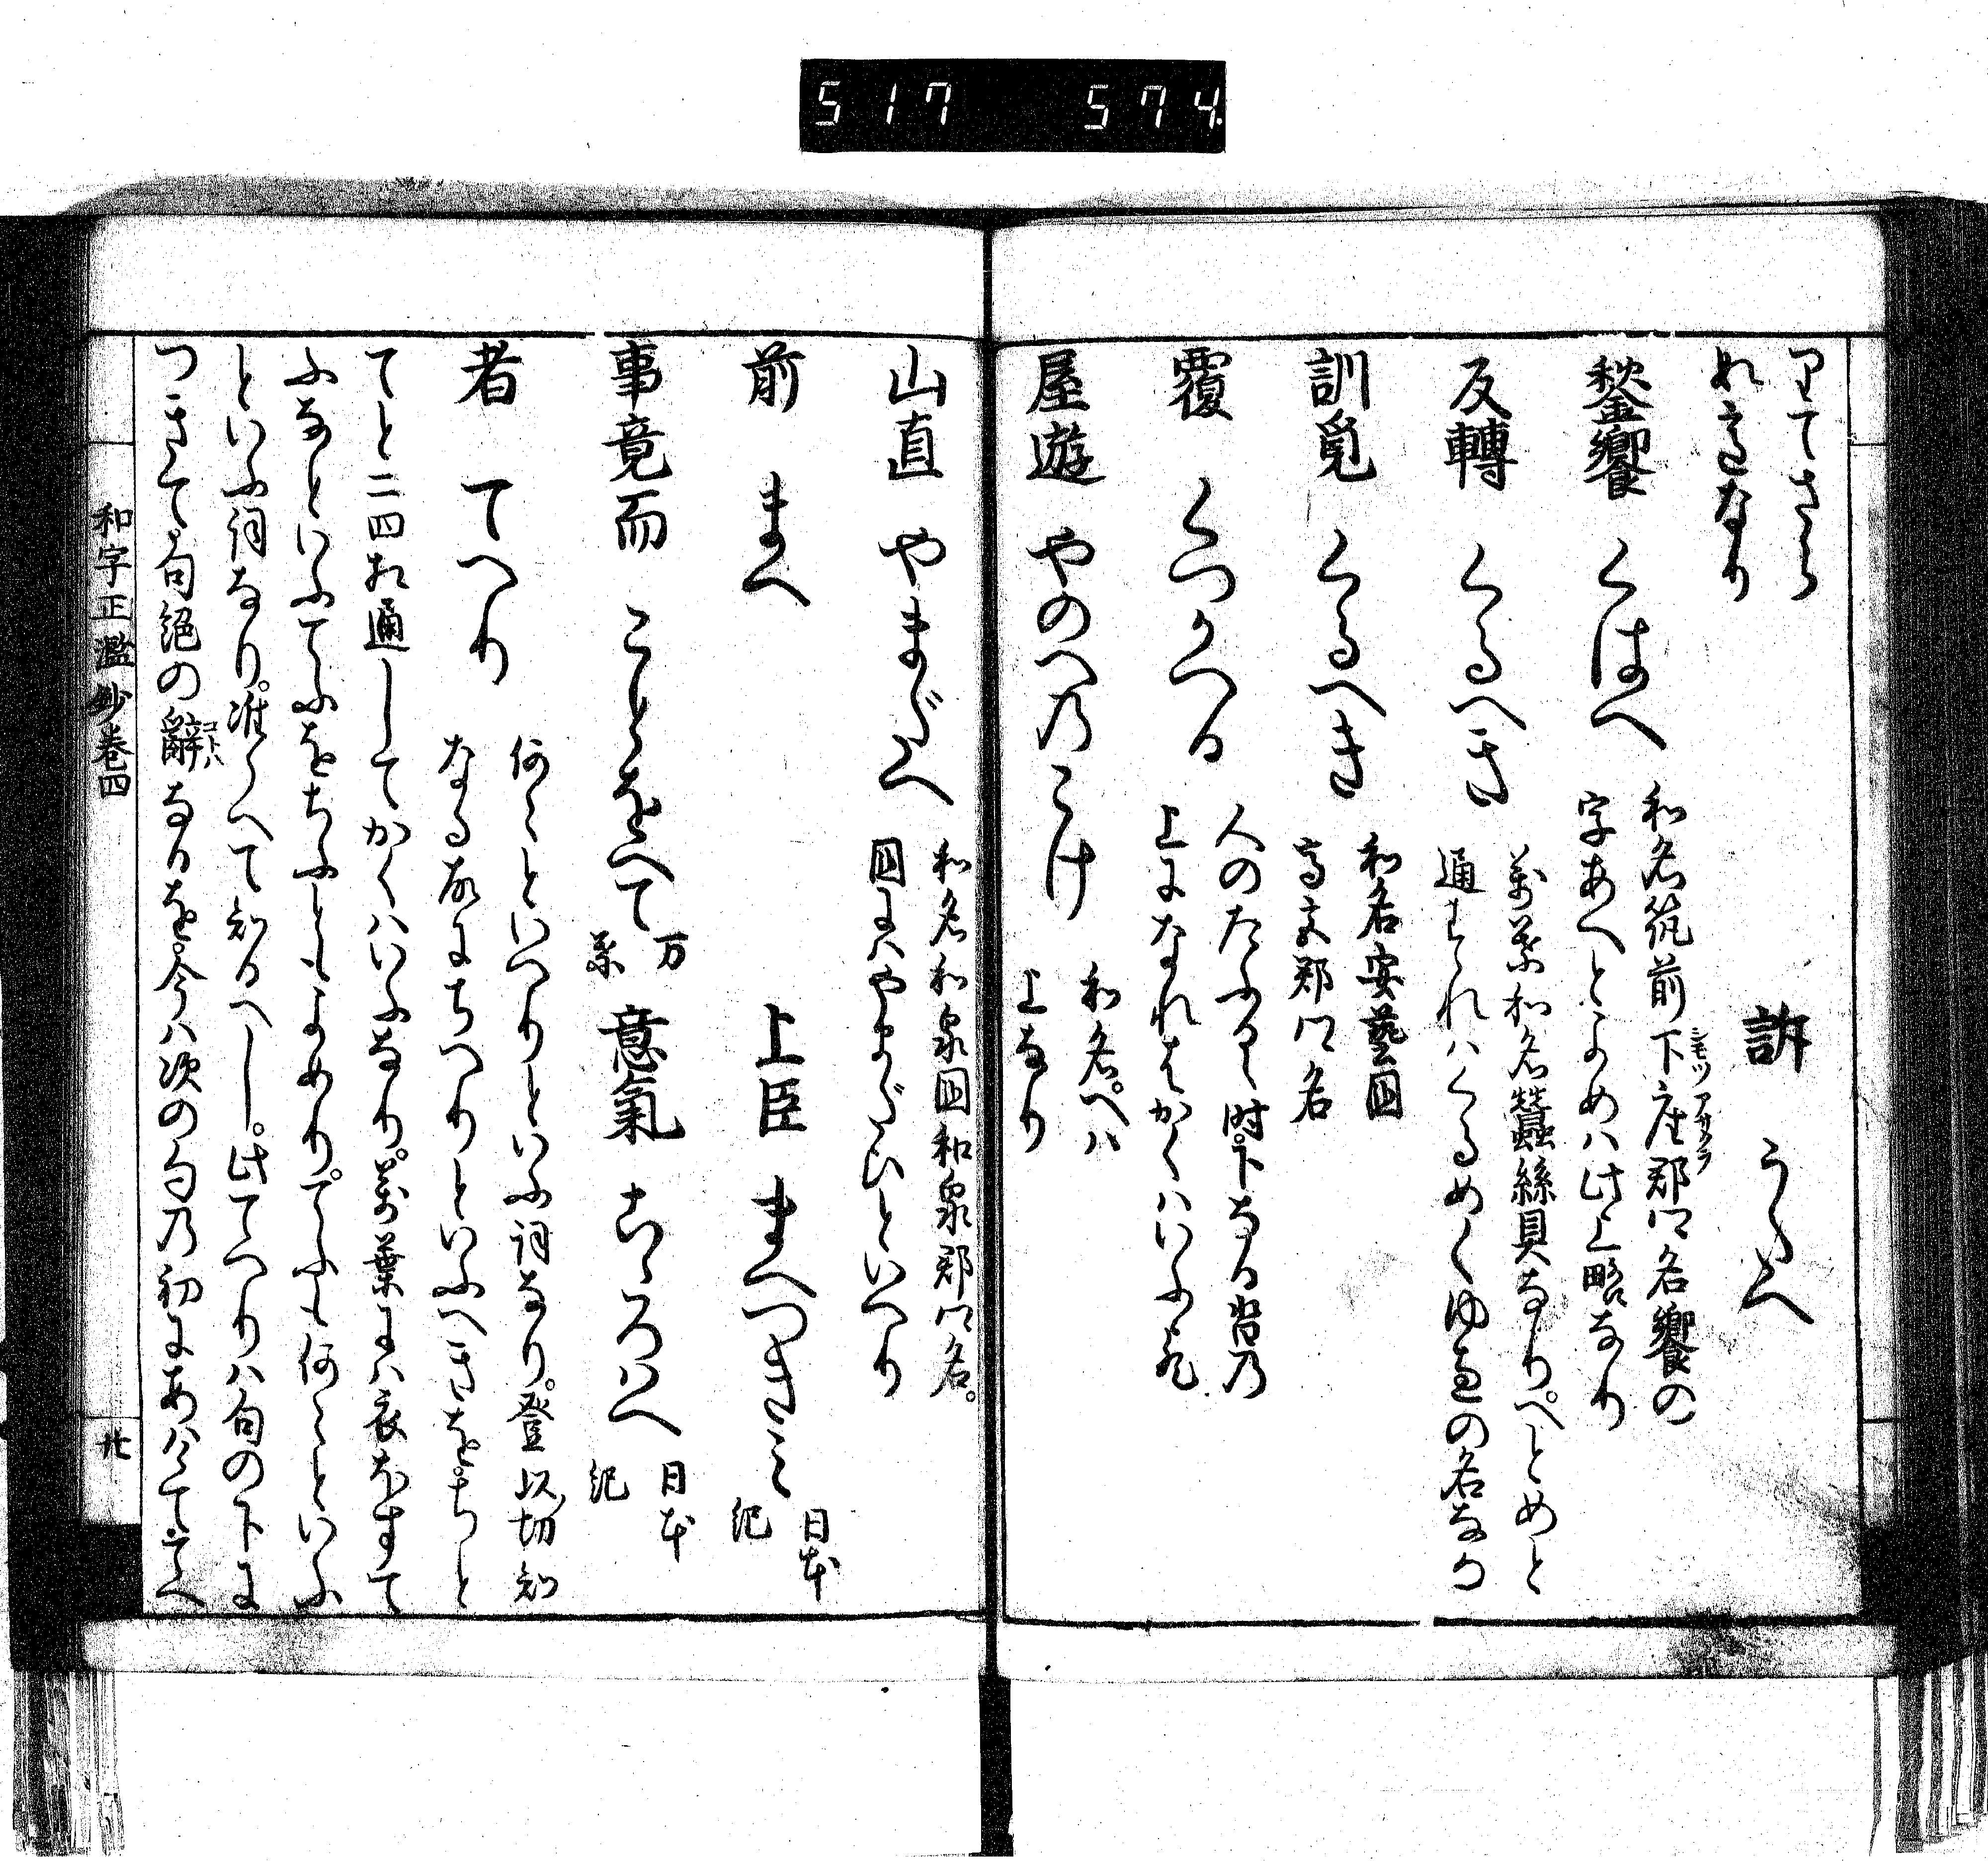 517 574
りてさら
ぬこゑなり
訴 うたへ
鍫饗 くはへ 和名筑前下座郡郷名饗の
シモツアサクラ
字あへとよめは此上略なり
反轉 くるへき 萬葉和名蠶絲具なりへとめと
通すれはくるめくゆゑの名なり
訓覓 くるへき 和名安藝國
高宮郡郷名
覆 くつかへる 人のたふるゝ時下なる沓乃
上になれはかくはいふ歟
屋遊 やのへ乃こけ 和名へハ
上なり
山直 やまだへ 和名和泉國和泉郡郷名。
國にハやまだひといへり
前 まへ
上臣 まへつきみ 日本
紀
事竟而 ことをへて 万
葉
意氣 こゝろはへ 日本
紀
者 てへり 何〻といへりといふ詞なり。登以切知
なる故にちへりといふへきを。ちと
てと二四相通してかくハいふなり。萬葉にハ衣ほすて
ふなといふてふをちふともよめり。てふも何〻といふ
といふ詞なり。准らへて知るへし。此てへりハ句の下に
つきて。句絶の辭なるを。今ハ次の句乃初にあけて。てへ
コトハ
和字正濫鈔巻四
廿